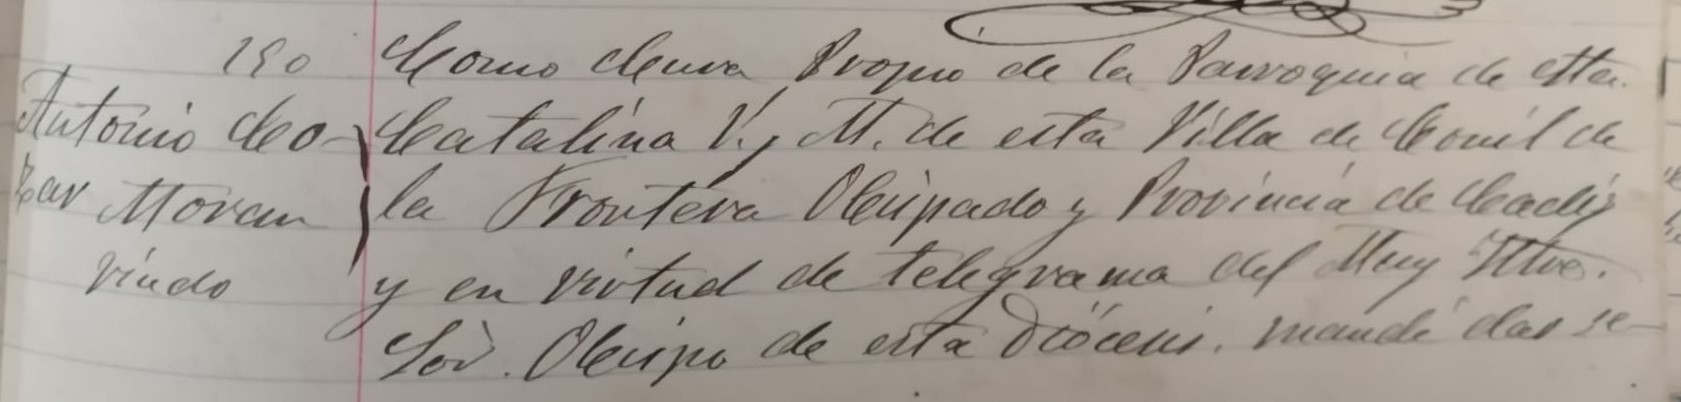 190
Antonio Leo-
bar Moran
viudo
Como Cura Propio de la Parroquia de Sta.
Catalina V. y M. de esta Villa de Conil de
la Frontera Obispado y Provincia de Cadiz
y en virtud de telegrama del Muy Iltre.
Sor. Obispo de esta Diócesis. mandé dar se-